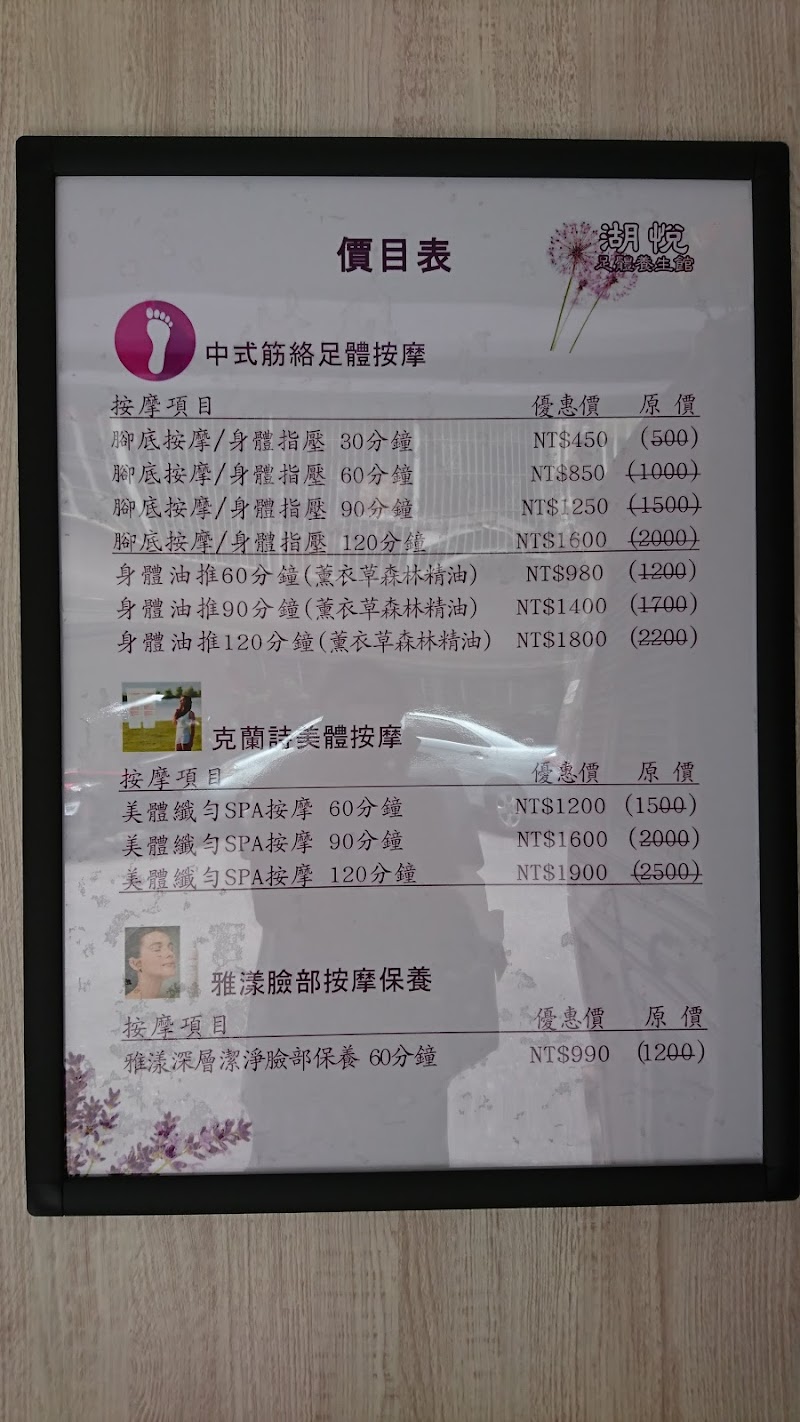 價目表
湖悅
足體養生館
中式筋絡足體按摩
按摩項目 優惠價 原價
腳底按摩/身體指壓 30分鐘 NT$450 (500)
腳底按摩/身體指壓 60分鐘 NT$850 (1000)
腳底按摩/身體指壓 90分鐘 NT$1250 (1500)
腳底按摩/身體指壓 120分鐘 NT$1600 (2000)
身體油推60分鐘(薰衣草森林精油) NT$980 (1200)
身體油推90分鐘(薰衣草森林精油) NT$1400 (1700)
身體油推120分鐘(薰衣草森林精油) NT$1800 (2200)
克蘭詩美體按摩
按摩項目 優惠價 原價
美體纖勻SPA按摩 60分鐘 NT$1200 (1500)
美體纖勻SPA按摩 90分鐘 NT$1600 (2000)
美體纖勻SPA按摩 120分鐘 NT$1900 (2500)
雅漾臉部按摩保養
按摩項目 優惠價 原價
雅漾深層潔淨臉部保養 60分鐘 NT$990 (1200)